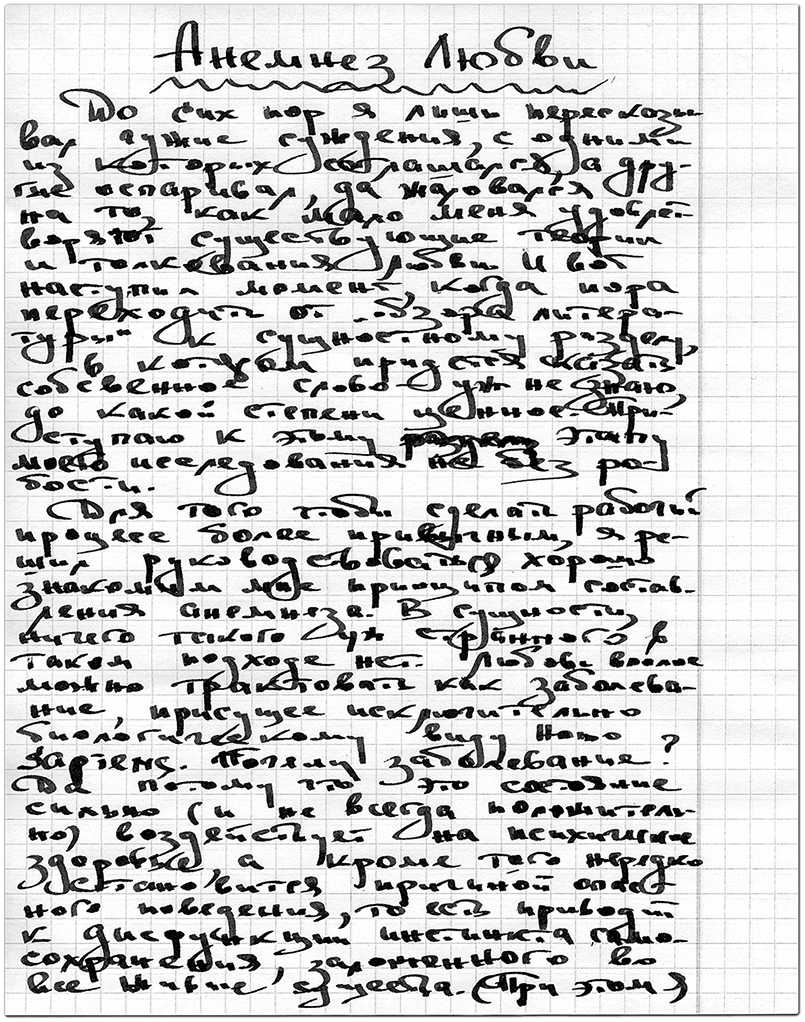 Анемнез Любви
До сих пор я лишь пересказы-
вал чужие суждения, с одними
из которых соглашался, а дру-
гие оспаривал, да жаловался
на то, как мало меня удовлет-
воряют существующие теории
и толкования любви. И вот
наступил момент, когда пора
переходить от "обзора литера-
туры" к сущностному разделу,
в котором придется сказать
собсвенное слово - уж не знаю,
до какой степени ценное. При-
ступаю к этому этапу
моего исследования не без ро-
бости.
Для того чтоби сделать рабочий
процесс более привычным, я ре-
шил руководствоваться хорошо
знакомым мне принципом состав-
ления анемнеза. В сущности,
ничего такого уж странного в
таком подходе нет. Любовь вполне
можно трактовать как заболева-
ние, присущее исключительно
биологическому виду Homo
Sapiens. Почему заболевание?
Да потому что это состояние
сильно (и не всегда положитель-
но) воздействует на психическое
здоровье, а кроме того нередко
становится причиной опас-
ного поведения, то есть приводит
к дисфункции инстинкта само-
сохранения, заложенного во
все живые существа. (При этом я